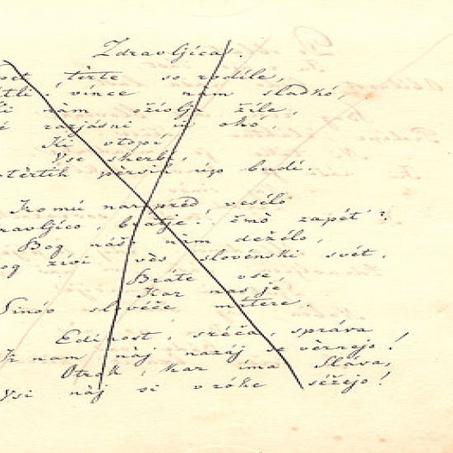 Zdravljica.
pet tèrte so rodile,
vince nam sladkó,
nàm oživlja žile,
razjásni okó,
Ki utopí
Vse skerbi,
pèrsih úp budi.
Komú narpred veselo
bratje! čmò zapét'?
Bog naši nàm deželo,
živi vès slovénski svét,
Bráte vse,
Kar nas je
Sinóv slovéče mátere.
Edinost, sréča, správa
K nam nàj nazáj se vèrnejo!
Otrók, kar ima Sláva,
Vsi nàj si v róke séžejo!